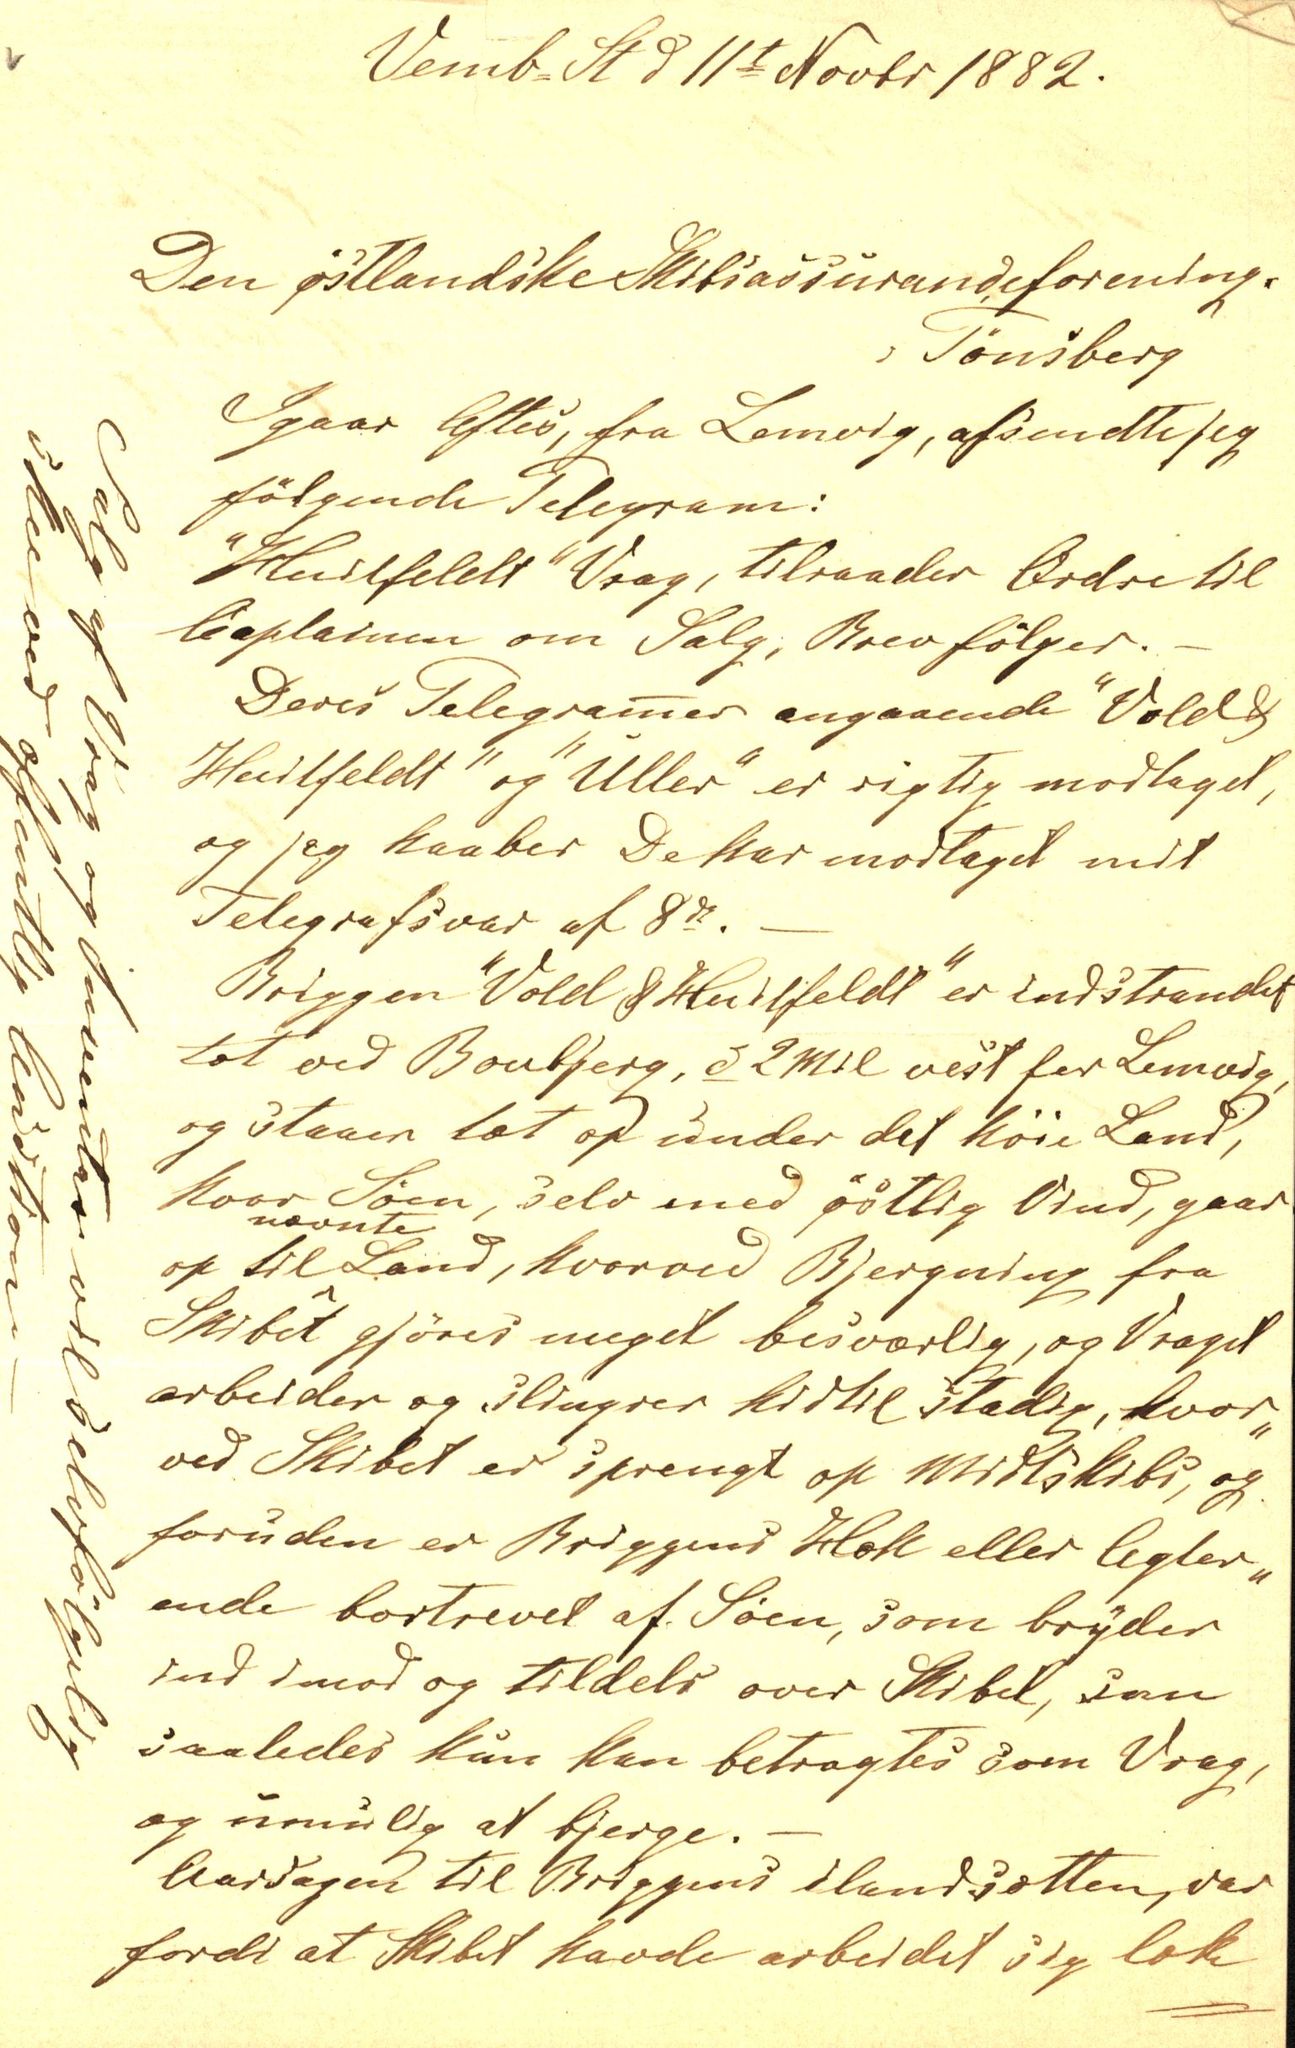 Vemb-St d 11t Novbr 1882.
Den östlandske Skibsassuranceforening.
Tönsberg
Igaar Aftes, fra Lemvig, afsendte jeg
fölgende Telegram:
"Huitfeldt" Vrag, tilraader Ordre til
Captainen om Salg, Brev fölger. –
Deres Telegramer angaaende "Vold &
Huitfeldt" og "Uller" er rigtig modtaget,
og jeg haaber De har modtaget mit
Telegrafsvar af 8de. –
Briggen "Vold & Huitfeldt" er indstrandet
tæt ved Bovbjerg, 2 Mil vest for Lemvig,
og staaer tæt op under det höie Land,
hvor Söen, selv med östlig Vind, gaar
nævnte
op til Land, hvorved Bjergning fra
Skibet gjöres meget besværlig, og Vraget
arbeider og slingrer hidtil stadig, hvor„
ved Skibet er sprengt op Midtskibs, og
foruden er Briggens Hæk eller Agter„
ende bortrevet af Söen, som bryder
ind imod og tildels over Skibet, som
saaledes kun kan betragtes som Vrag,
og umulig at bjerge. –
Aarsagen til Briggens ilandsætten, var
fordi at Skibet havde arbeidet sig læk
Salg af Vrag og Inventar vil selvfölgelig
skee ved offentlig Auction –